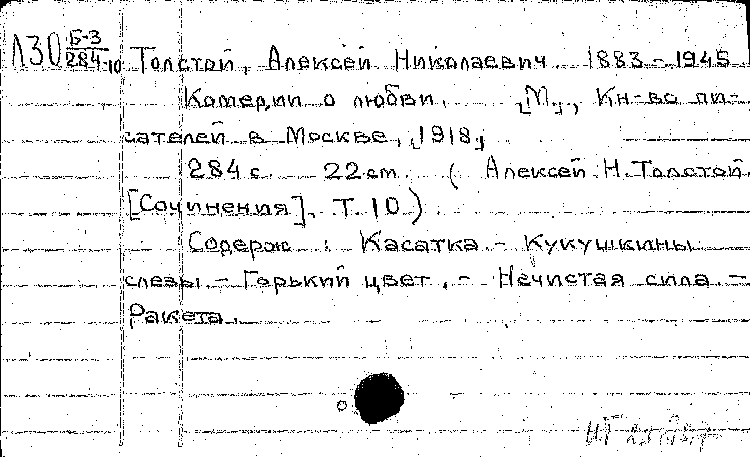 Л30 Б-3/284-10 Толстой, Алексей Николаевич. 1883-1945
Комедии о любви. [М.], Кн-во пи-
сателей в Москве, [1918]
284 с. 22 см. (Алексей Н. Толстой.
[Сочинения]. Т. 10)
Содерж: Касатка. - Кукушкины
слезы. - Горький цвет. - Нечистая сила. -
Ракета.